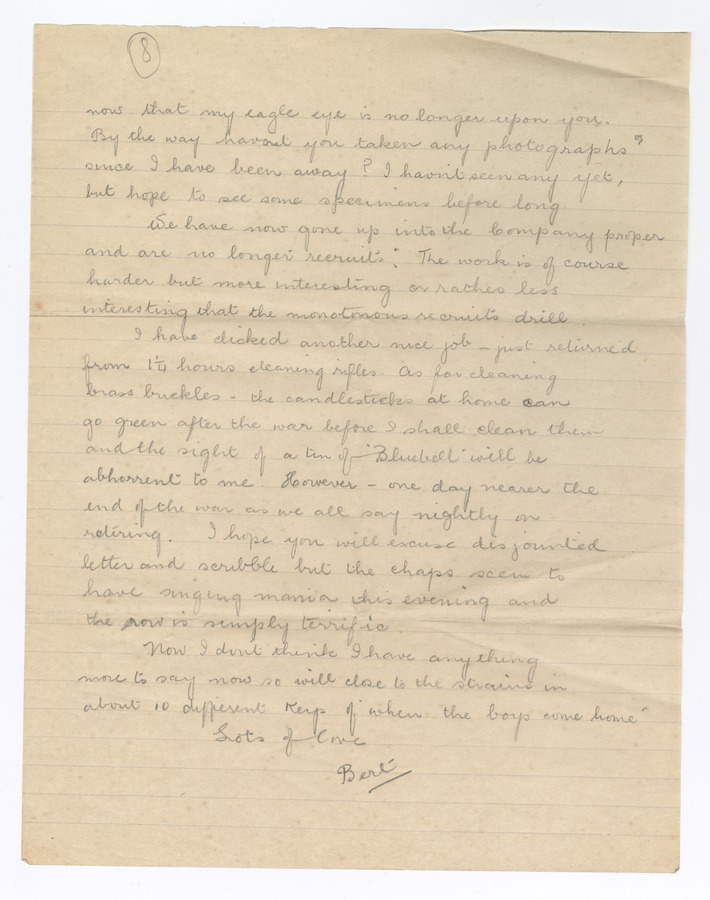 8
now that my eagle eye is no longer upon you.
By the way havent you taken any photographs
since I have been away? I havn't seen any yet,
but hope to see some specimens before long.
We have now gone up into the Company proper
and are no longer recruits. The work is of course
harder but more interesting or rather less
interesting that the monotonous recruits drill.
I have clicked another nice job - just returned
from 1¼ hours cleaning rifles. As for cleaning
brass buckles - the candlesticks at home can
go green after the war before I shall clean them
and the sight of a tin of "Bluebell" will be
abhorrent to me. However - one day nearer the
end of the war as we all say nightly on
retiring. I hope you will excuse disjointed
letter and scribble but the chaps seem to
have singing mania this evening and
the row is simply terrific.
Now I don't think I have anything
more to say now so will close to the strains in
about 10 different keys of "when the boys come home"
Lots of Love
Bert